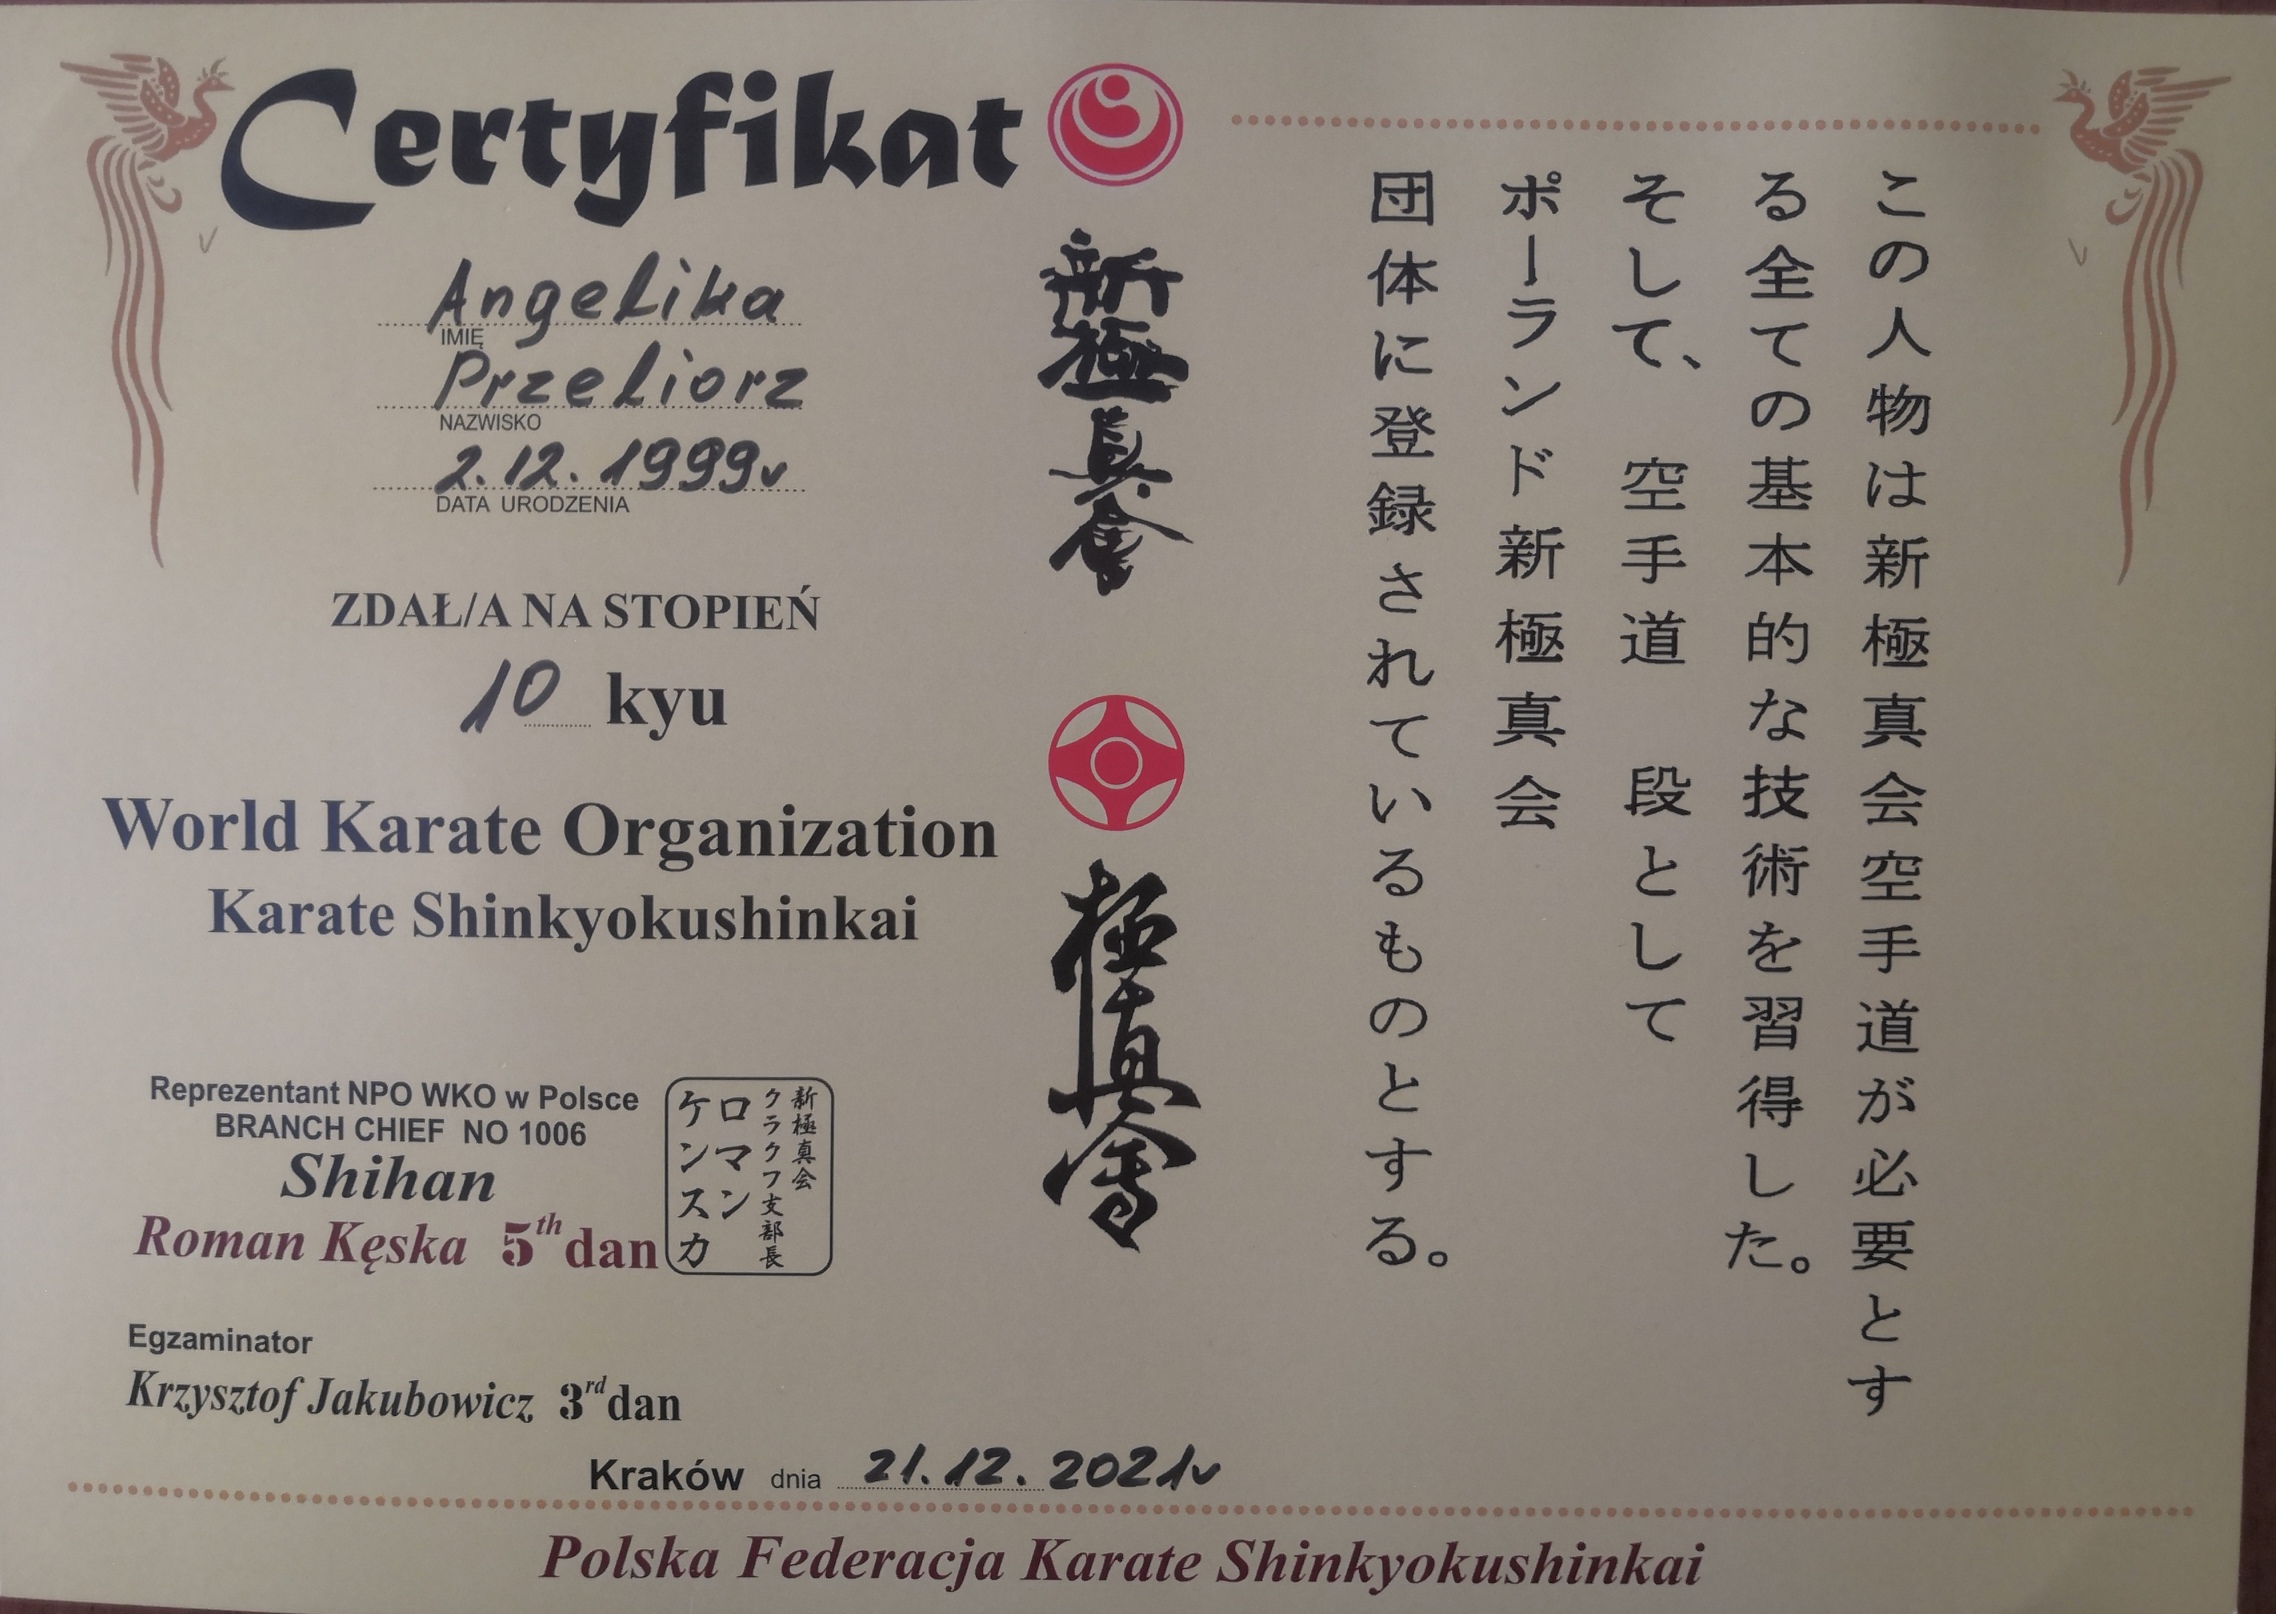 Certyfikat
Angelika
IMIĘ
Przeliorz
NAZWISKO
2.12.1999r
DATA URODZENIA
ZDAŁ/A NA STOPIEŃ
10 kyu
World Karate Organization
Karate Shinkyokushinkai
Reprezentant NPO WKO w Polsce
BRANCH CHIEF NO 1006
Shihan
Roman Kęska 5th dan
新極真会
クラクフ支部長
ロマン
ケンスカ
Egzaminator
Krzysztof Jakubowicz 3rd dan
Kraków dnia 21.12.2021r
新極真會
極真會
この人物は新極真会空手道が必要とす
る全ての基本的な技術を習得した。
そして、 空手道 段として
ポーランド新極真会
団体に登録されているものとする。
Polska Federacja Karate Shinkyokushinkai